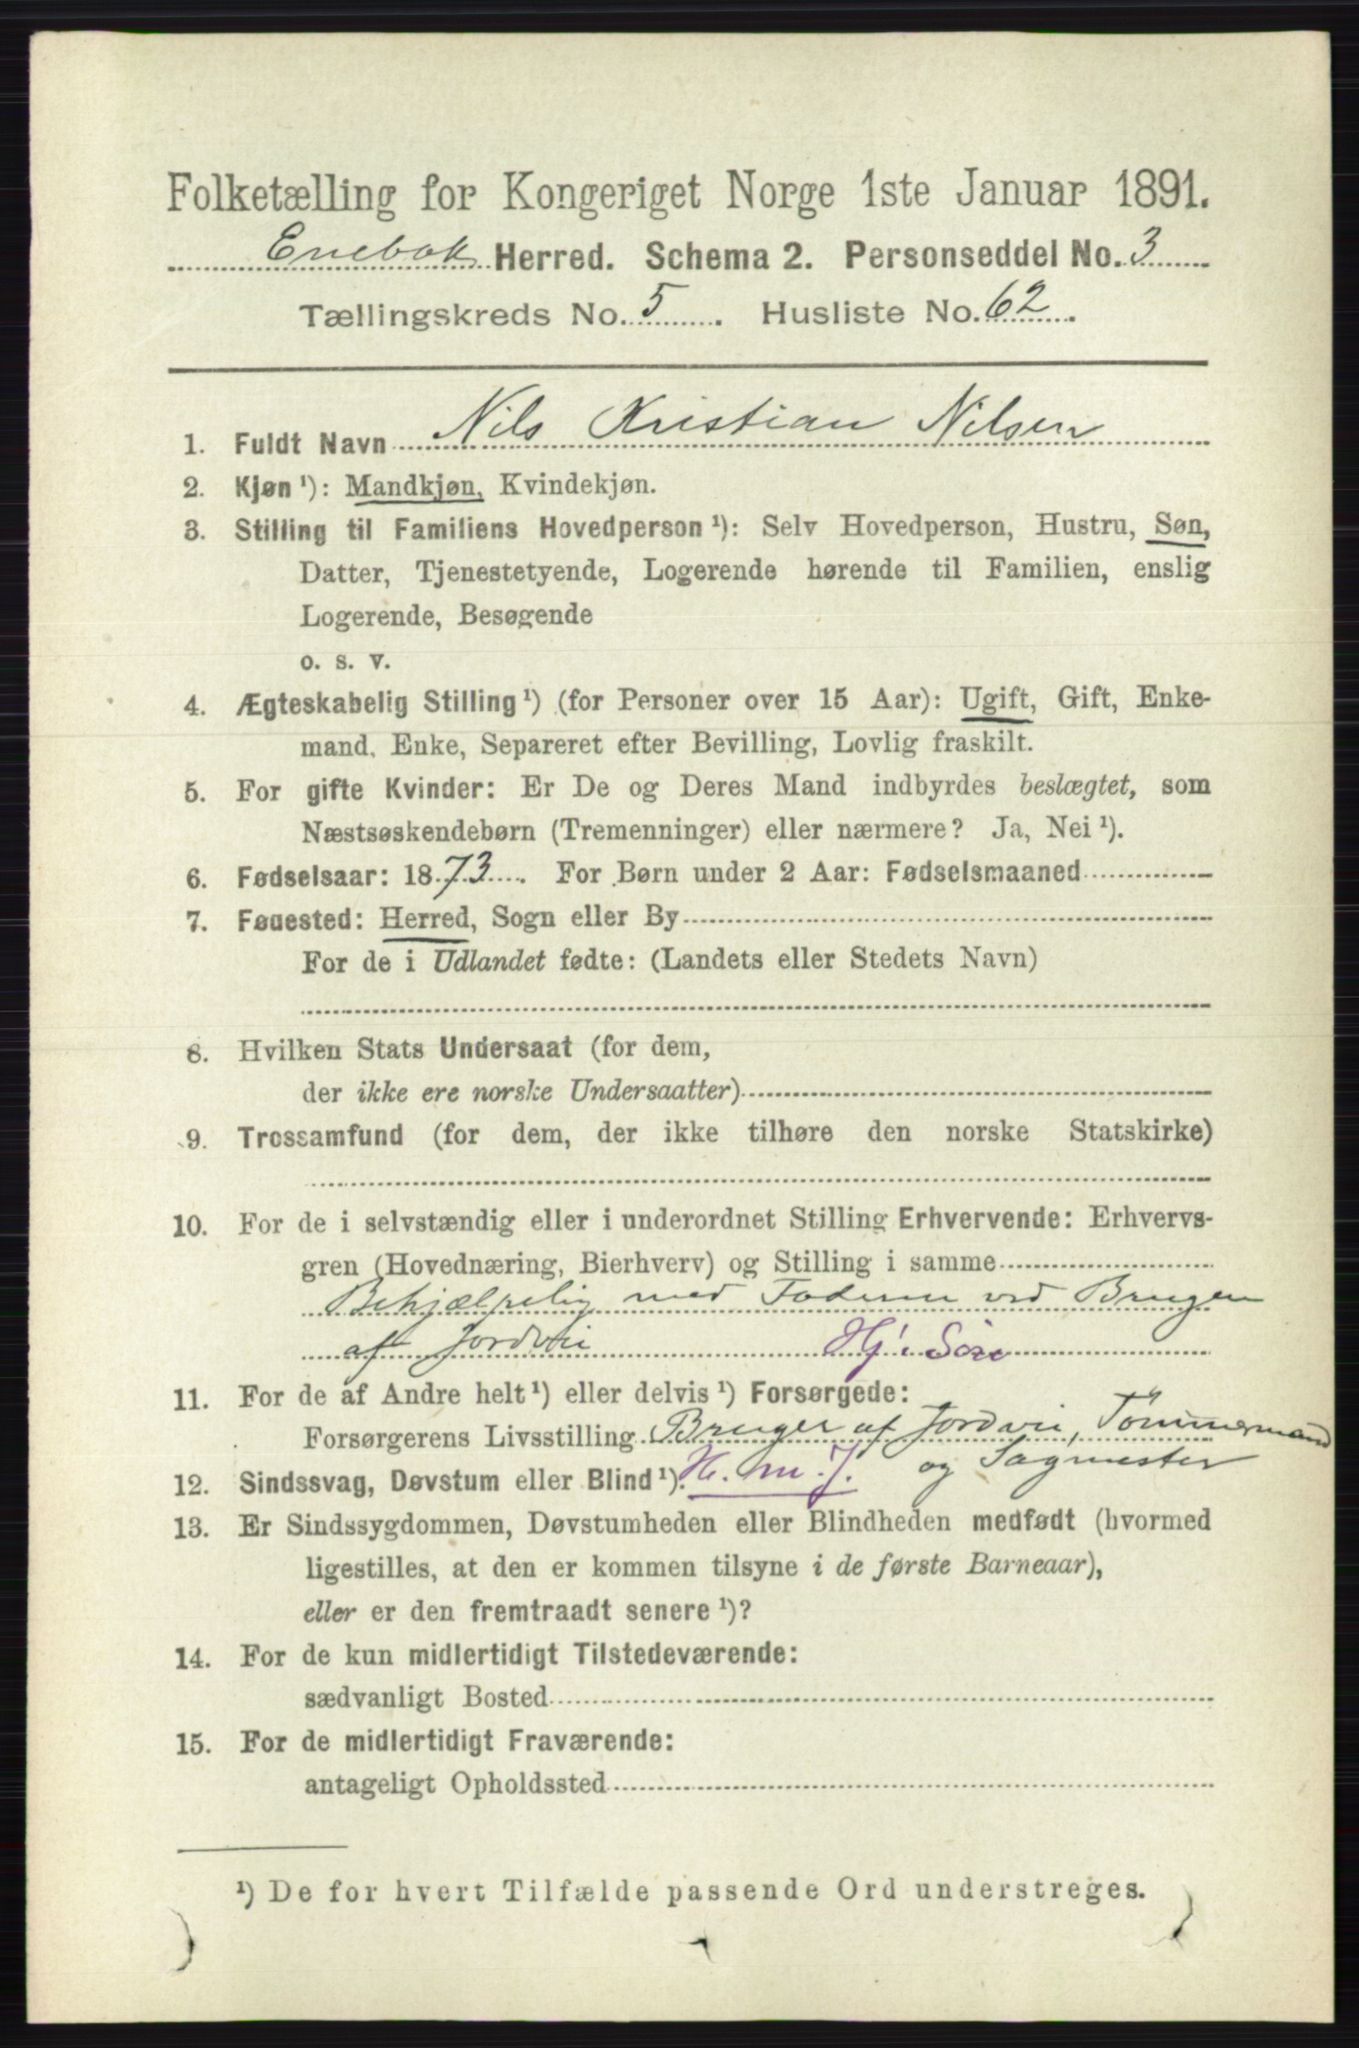 Folketælling for Kongeriget Norge 1ste Januar 1891.
Enebak Herred. Schema 2. Personseddel No. 3
Tællingskreds No. 5. Husliste No. 62.
1. Fuldt Navn Nils Kristian Nilsen
2. Kjøn ¹): Mandkjøn, Kvindekjøn.
3. Stilling til Familiens Hovedperson ¹): Selv Hovedperson, Hustru, Søn,
Datter, Tjenestetyende, Logerende hørende til Familien, enslig
Logerende, Besøgende
o. s. v.
4. Ægteskabelig Stilling ¹) (for Personer over 15 Aar): Ugift, Gift, Enke-
mand, Enke, Separeret efter Bevilling, Lovlig fraskilt.
5. For gifte Kvinder: Er De og Deres Mand indbyrdes beslægtet, som
Næstsøskendebørn (Tremenninger) eller nærmere? Ja, Nei ¹).
6. Fødselsaar: 1873. For Børn under 2 Aar: Fødselsmaaned
7. Fødested: Herred, Sogn eller By
For de i Udlandet fødte: (Landets eller Stedets Navn)
8. Hvilken Stats Undersaat (for dem,
der ikke ere norske Undersaatter)
9. Trossamfund (for dem, der ikke tilhøre den norske Statskirke)
10. For de i selvstændig eller i underordnet Stilling Erhvervende: Erhvervs-
gren (Hovednæring, Bierhverv) og Stilling i samme
Behjælpelig med Faderen ved Brugen
af Jordvei Hj. Søn
11. For de af Andre helt ¹) eller delvis ¹) Forsørgede:
Forsørgerens Livsstilling Bruger af Jordvei, Tömmermand
og Sagmester
12. Sindssvag, Døvstum eller Blind ¹). H. m. J.
13. Er Sindssygdommen, Døvstumheden eller Blindheden medfødt (hvormed
ligestilles, at den er kommen tilsyne i de første Barneaar),
eller er den fremtraadt senere ¹)?
14. For de kun midlertidigt Tilstedeværende:
sædvanligt Bosted
15. For de midlertidigt Fraværende:
antageligt Opholdssted
¹) De for hvert Tilfælde passende Ord understreges.